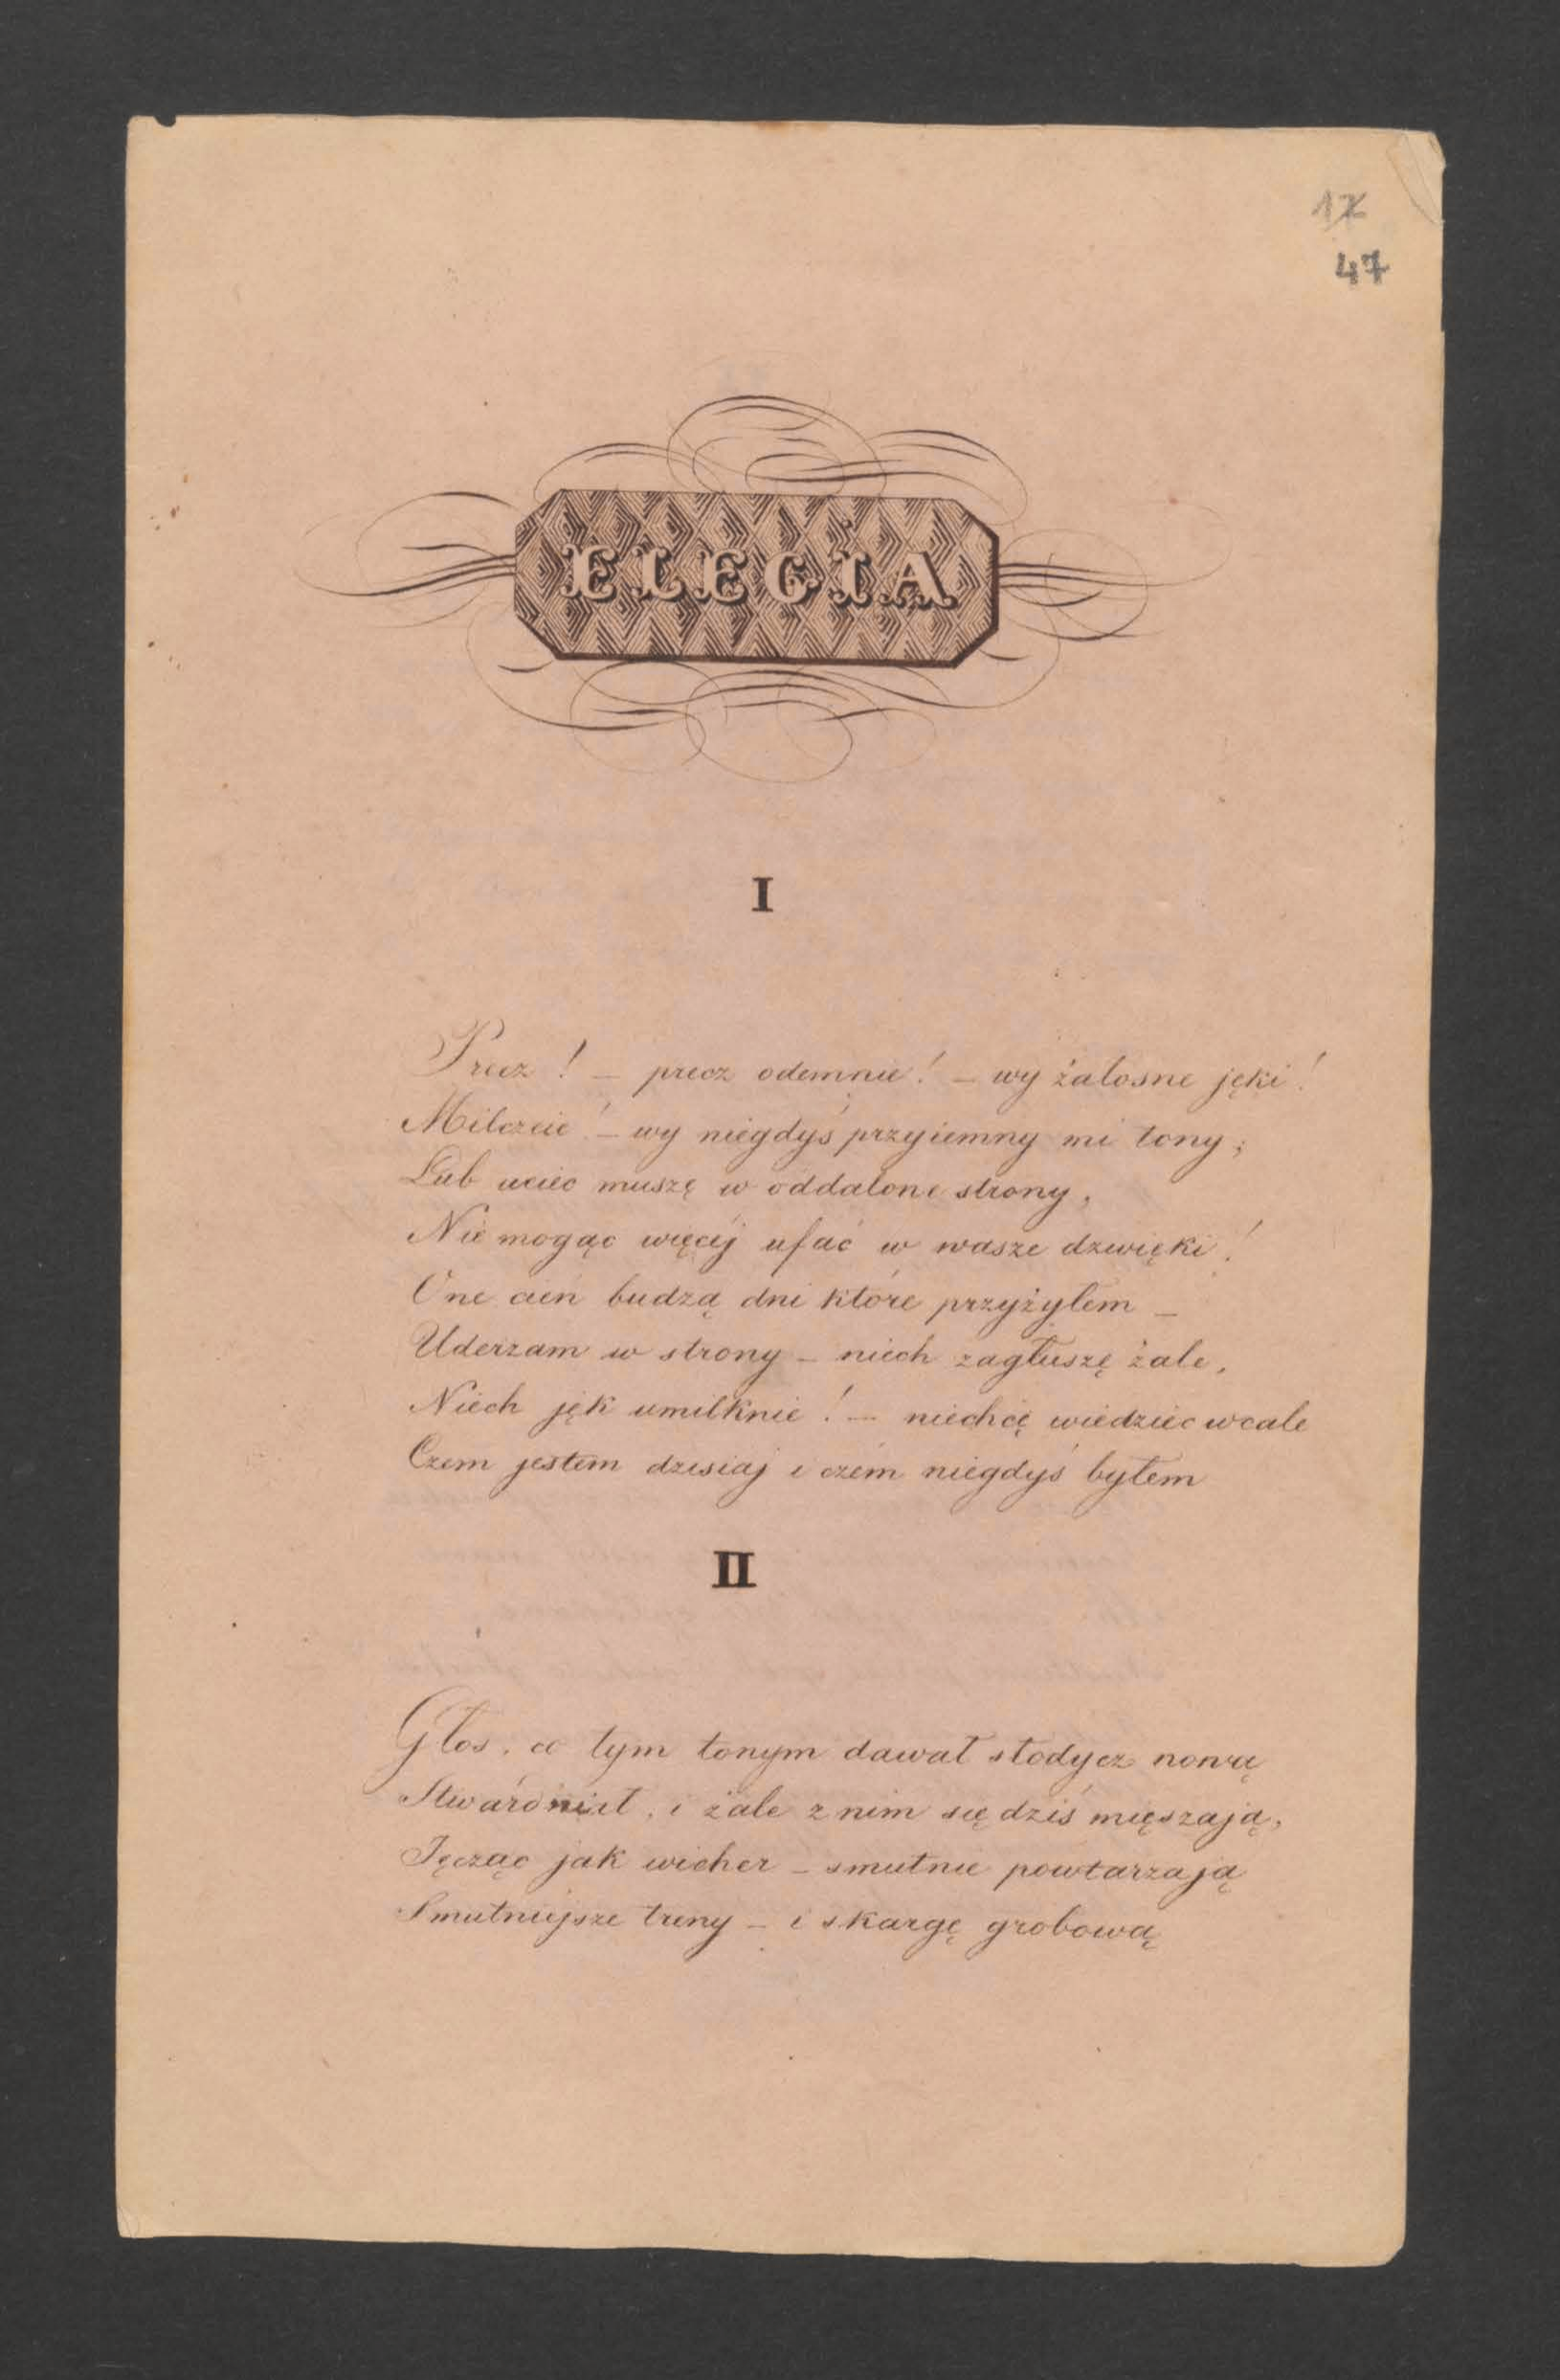 17
47
ELEGIA
I
Precz! – precz odemnie! – wy żałosne jęki!
Milczcie! – wy niegdyś przyiemny mi tony;
Lub uciec muszę w oddalone strony,
Nie mogąc więcéj ufać w wasze dzwięki!
One cień budzą dni które przyżyłem –
Uderzam w strony – niech zagłuszę żale,
Niech jęk umilknie! – niechcę wiedziec wcale
Czem jestem dzisiaj i czém niegdyś byłem
II
Głos, co tym tonym dawał słodycz nową
Stwardniał, i żale z nim się dziś mięszają,
Jęcząc jak wicher – smutnie powtarzają
Smutniejsze treny – i skargę grobową